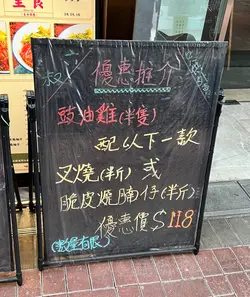 主食
優惠推介
豉油雞(半隻)
配以下一款
叉燒(半斤) 或
脆皮燒腩仔(半斤)
優惠價$118
(數量有限)